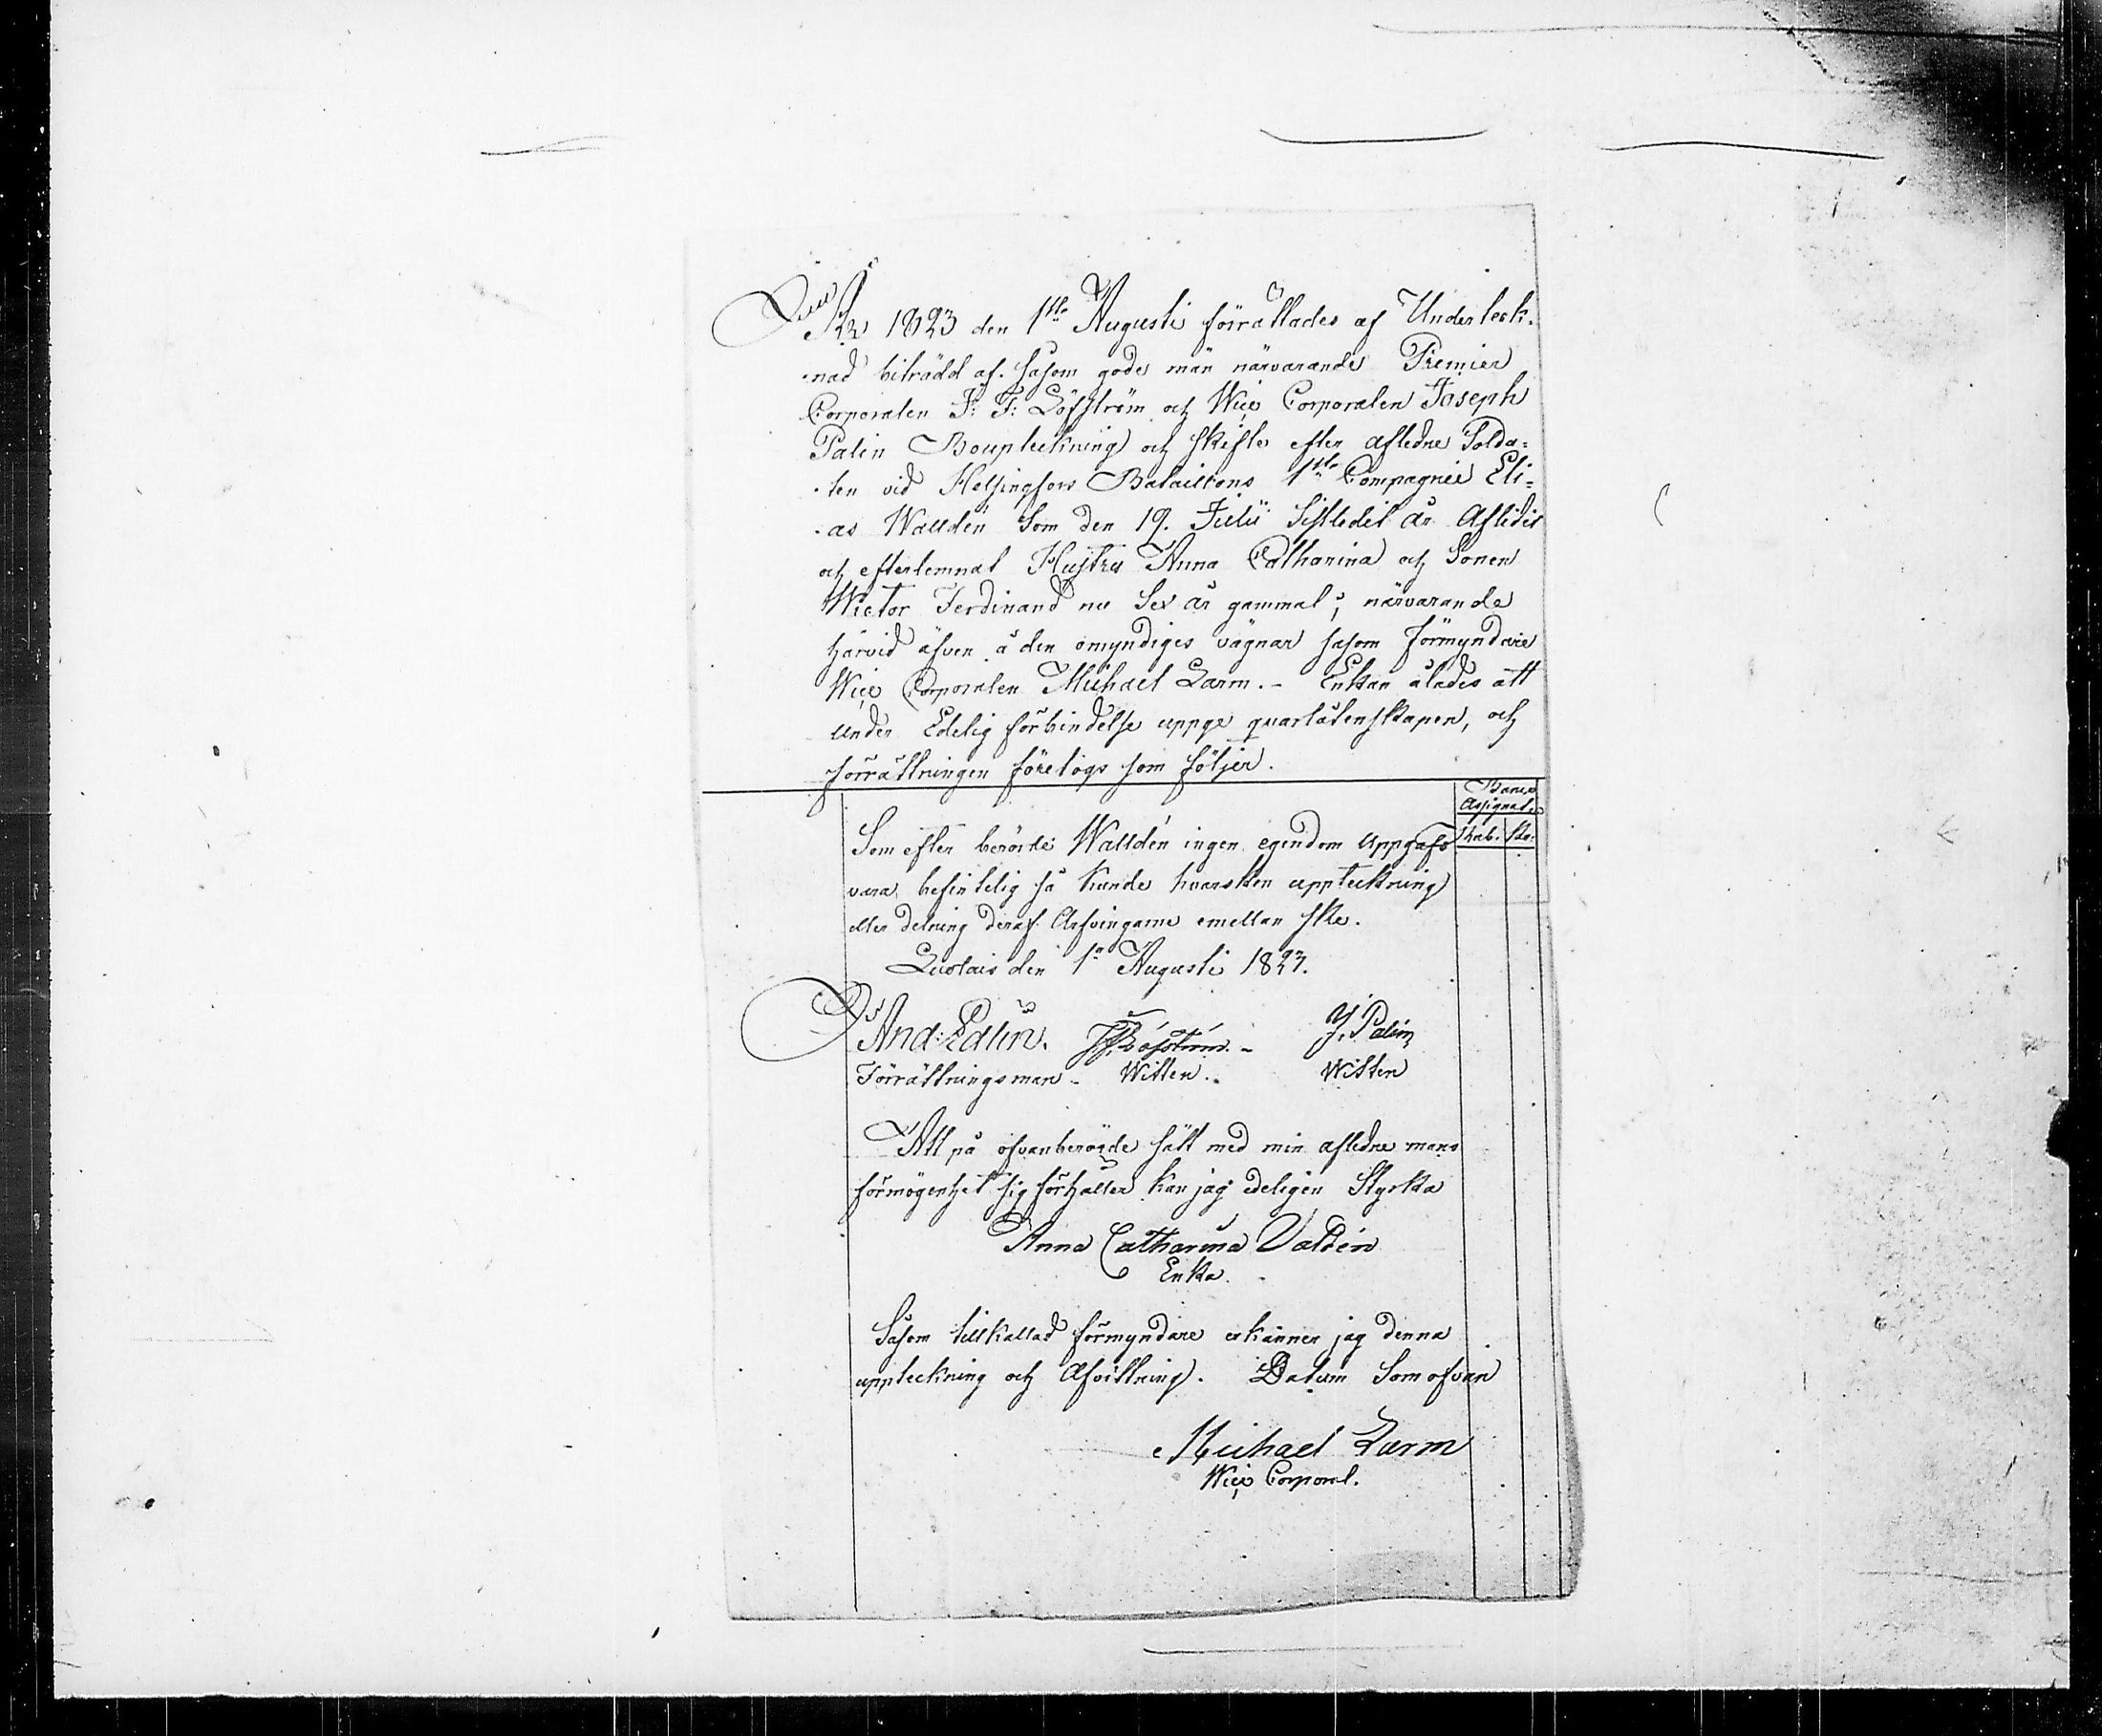 År 1823 den 1sta Augusti förrättades af Underteck-
nad biträdd af såsom gode män närvarande Premier
Corporalen F: F: Löfström och Wice Corporalen Joseph
Palin Boupteckning och skifte efter afledne Solda-
ten vid Helsingfors Bataillons 1sta Compagnie Eli-
as Walldén Som den 19. Julii Sistledit år Aflidit
och efterlemnat Hustru Anna Catharina och Sonen
Wictor Ferdinand nu Sex år gammal; närvarande
härvid äfven å den omyndiges vägnar såsom förmyndare
Wice Corporalen Michael Larm. - Enkan ålades att
under Edelig förbindelse uppge quarlåtenskapen, och
förrättningen företogs som följer.
Banco
Assignat.
Rub. Ko.
Som efter berörde Walldén ingen egendom uppgafs
vara befintelig så kunde hvarsken uppteckning
eller delning deraf Arfvingarne emellan ske.
den 1a Augusti 1823.
And: Edlin. J. Palin
Förrättningsman - Witten. - Witten
Att på ofvanberörde sätt med min afledne mans
förmögenhet sig förhåller kan jag edeligen Styrka
Anna Catharina Valdén
Enka.
Såsom tillkallad förmyndare erkänner jag denna
uppteckning och Afvittring. Datum Som ofvan
Michael Larm
Wice Corporal.